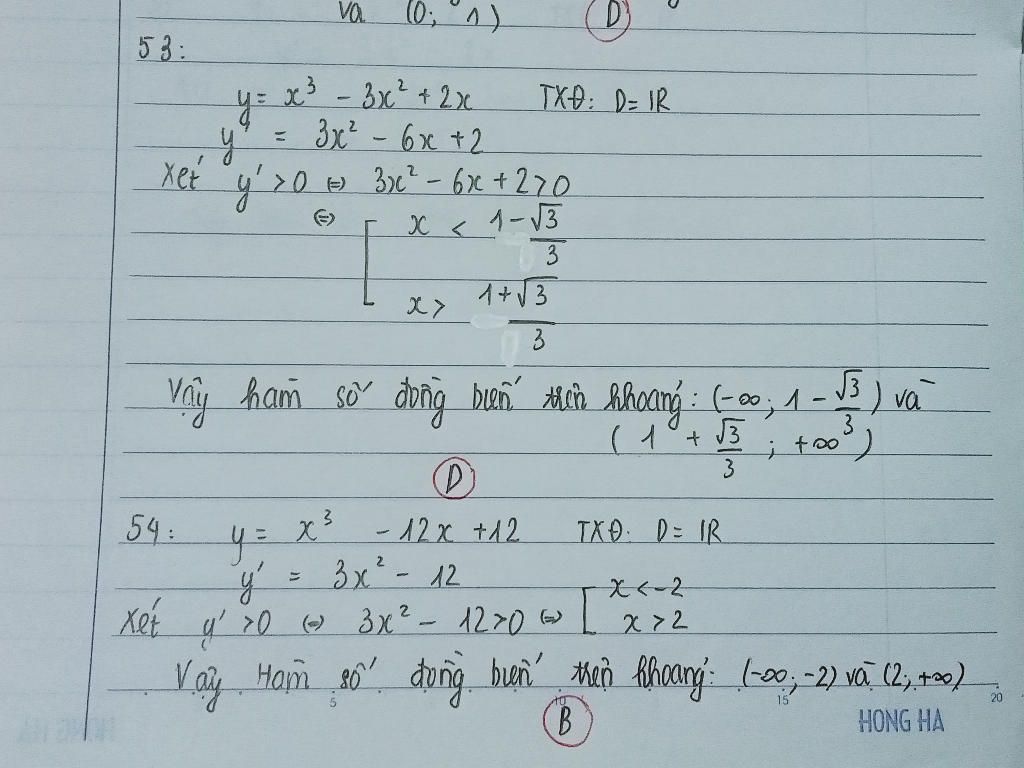 và (0; 1)
D
53:
y = x³ - 3x² + 2x TXĐ: D = IR
y' = 3x² - 6x + 2
Xét y' > 0 ⇔ 3x² - 6x + 2 > 0
⇔ [ x < 1 - √3/3
x > 1 + √3/3
Vậy hàm số đồng biến trên khoảng: (-∞; 1 - √3/3) và
(1 + √3/3; +∞)
D
54: y = x³ - 12x + 12 TXĐ: D = IR
y' = 3x² - 12
Xét y' > 0 ⇔ 3x² - 12 > 0 ⇔ [ x < -2
x > 2
Vậy Hàm số đồng biến trên khoảng: (-∞; -2) và (2; +∞)
5 10 15 20
B
HONG HA